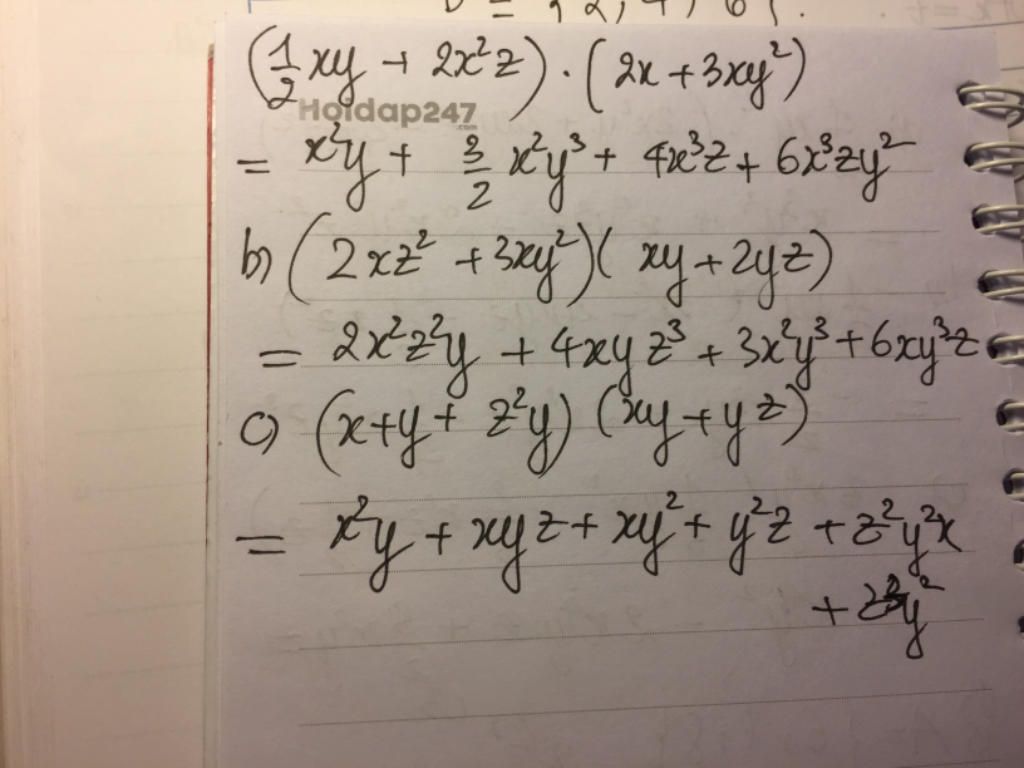 (1/2 xy + 2x²z) . (2x + 3xy²)
Hoidap247
.com
= x²y + 3/2 x²y³ + 4x³z + 6x³zy²
b) (2xz² + 3xy²)(xy + 2yz)
= 2x²z²y + 4xyz³ + 3x²y³ + 6xy³z
c) (x+y+ z²y) (xy + yz)
= x²y + xyz + xy² + y²z + z²y²x
+ z³y²